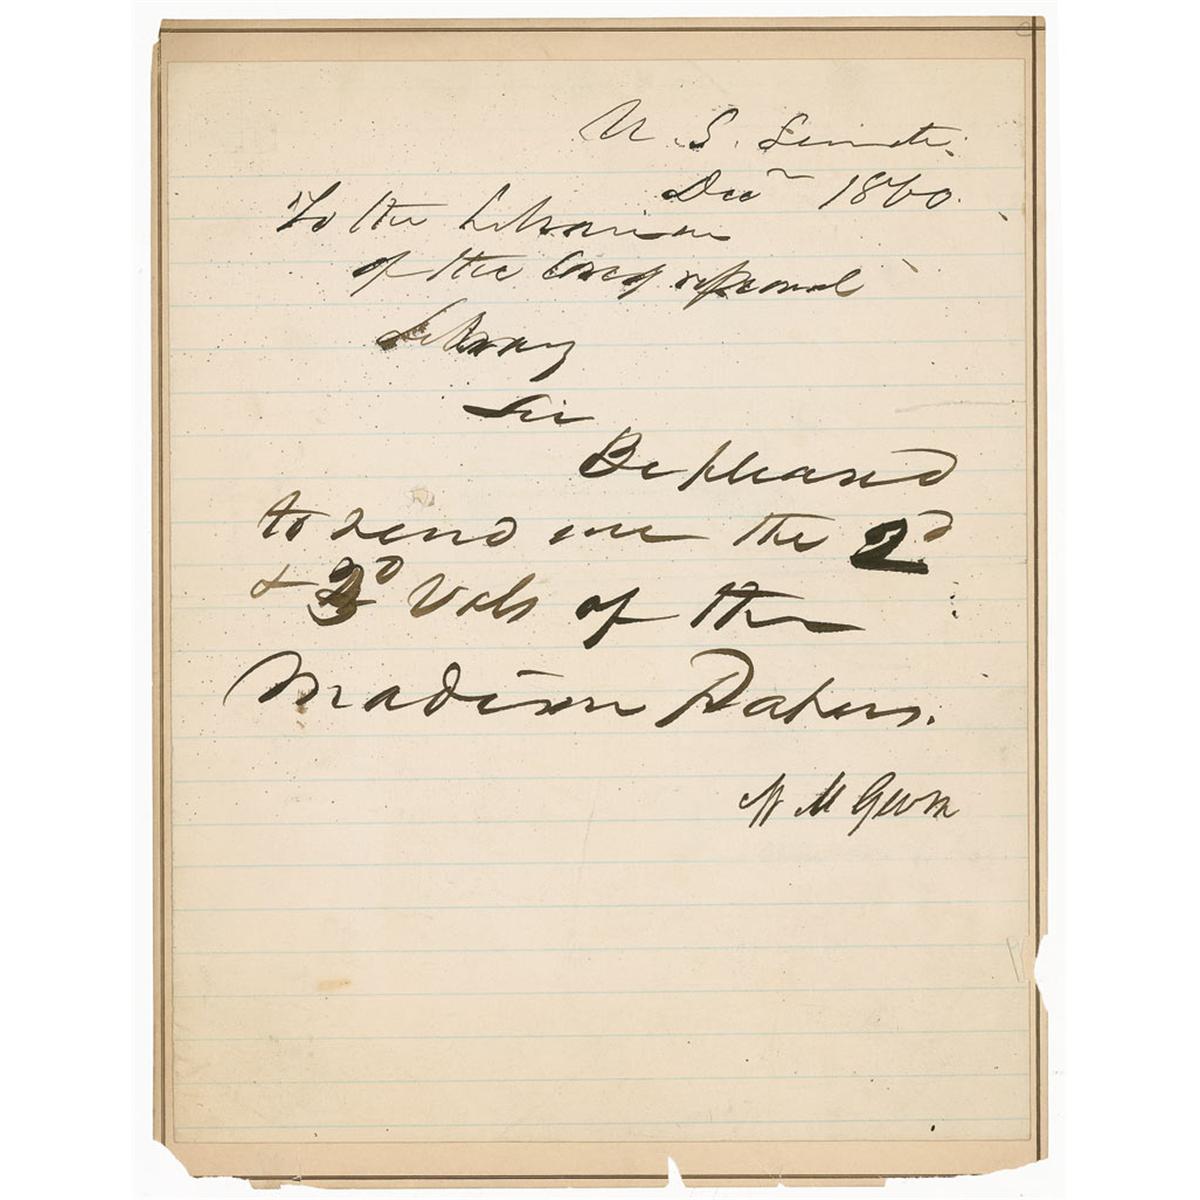 U. S. Senate.
Decr 1860.
To the Librarian
of the Congressional
Library
Sir
Be pleased
to send me the 2d
& 3d Vols of the
Madison Papers.
W M Gwin